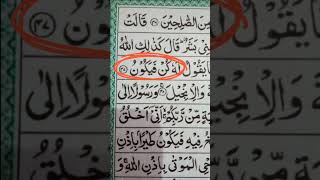 مِنَ الصّٰلِحِيْنَ ۝ قَالَتْ
بَشَرٌ قَالَ كَذٰلِكِ اللّٰهُ
يَقُوْلُ لَهٗ كُنْ فَيَكُوْنُ ۝٤٧
وَالْاِنْجِيْلَ وَرَسُوْلًا اِلٰى
مِّنْ رَّبِّكُمْ اَنِّيْۤ اَخْلُقُ
فِيْهِ فَيَكُوْنُ طَيْرًۢا بِاِذْنِ
الْمَوْتٰى بِاِذْنِ اللّٰهِ وَ